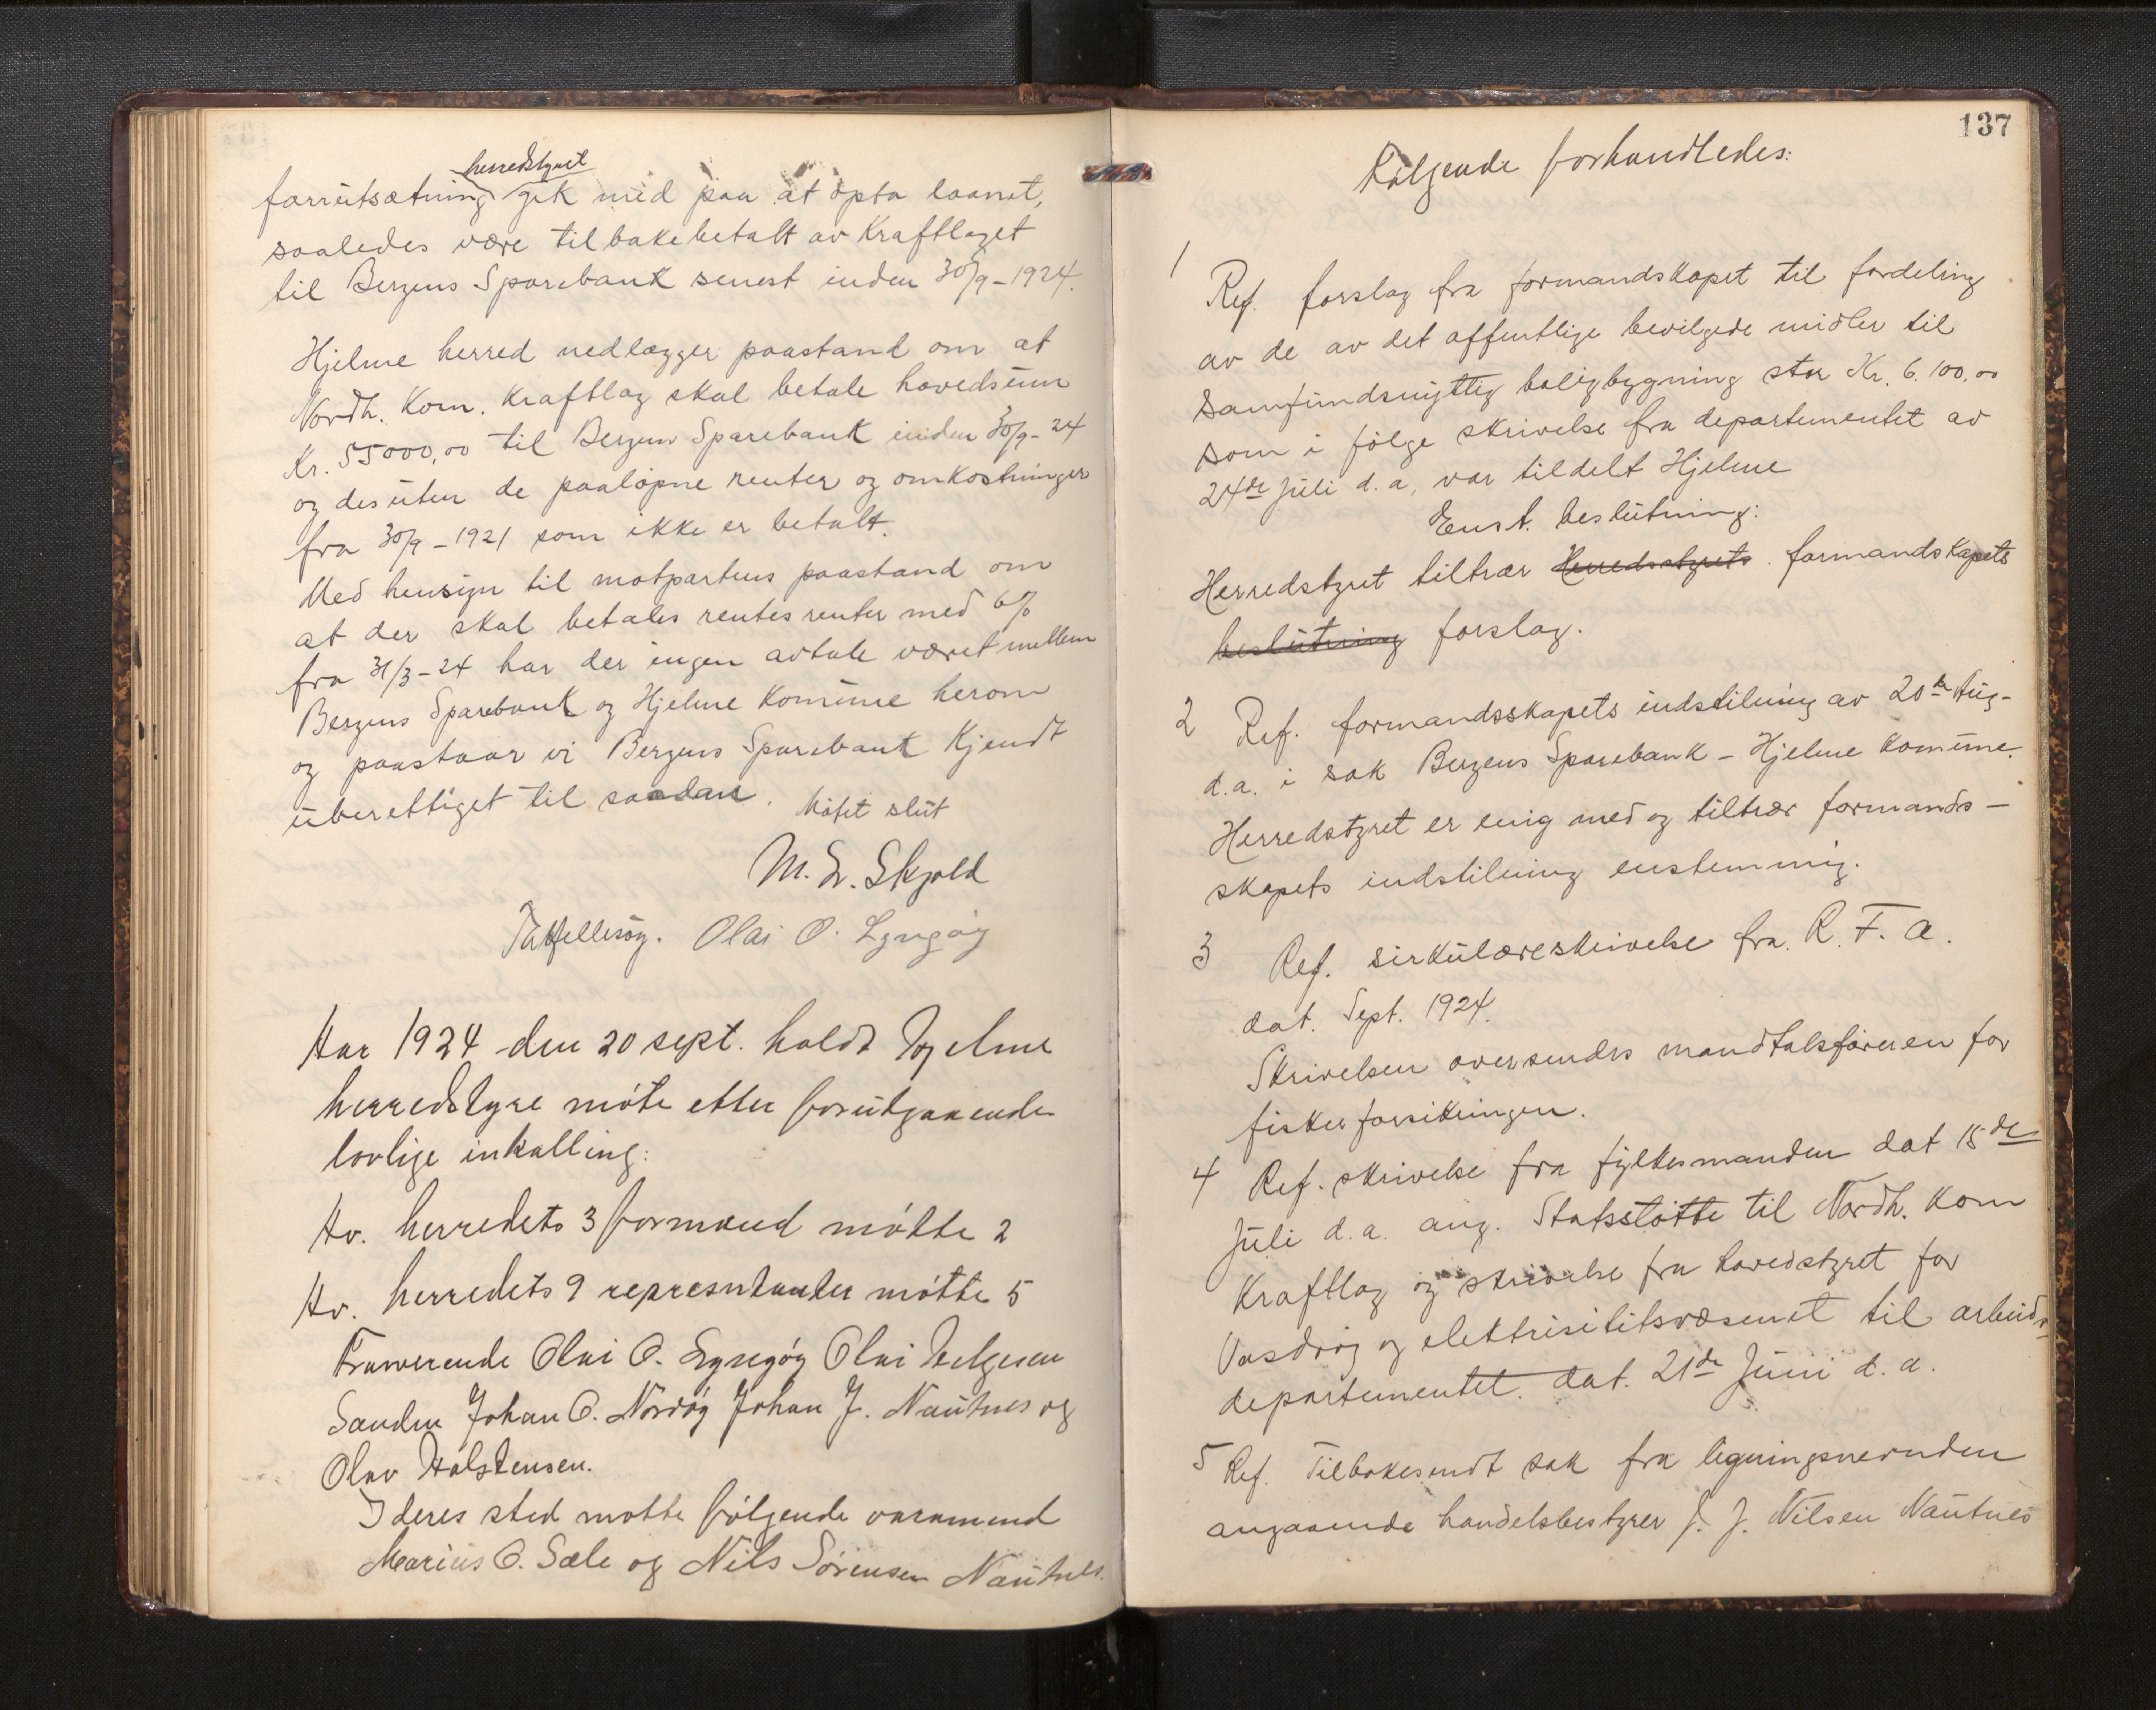 herredstyret
forrutsætning gik med paa at opta laanet,
saaledes være tilbakebetalt av Kraftlaget
til Bergens Sparebank senest inden 30/9-1924.
Hjelme herred nedlægger paastand om at
Nordh. Kom. Kraftlag skal betale hovedsum
Kr. 55000,00 til Bergens Sparebank inden 30/9-24
og desuten de paaløpne renter og omkostninger
fra 30/9-1921 som ikke er betalt.
Med hensyn til motpartens paastand om
at der skal betales rentesrenter med 6%
fra 31/3-24 har der ingen avtale været mellem
Bergens Sparebank og Hjelme Komune herom
og paastaar vi Bergens Sparebank Kjendt
uberettiget til saadan. Møtet slut
M. Skjold
Olai O. Lyngøy
Aar 1924 den 20 sept. holdt Hjelme
herredstyre møte etter forutgaaende
lovlige inkalling:
Av. herredets 3 formænd møtte 2
Av. herredets 9 represntanter møtte 5
Fraverende Olai O. Lyngøy Olai Helgesen
Sanden Johan O. Nordøy Johan J. Nautnes og
Olav Halstensen.
I deres sted møtte følgende varamend
Marius O. Sæle og Nils Sørensen Nautnes.
137
Følgende forhandledes:
1
Ref. forslag fra formandskapet til fordeling
av de av det offentlige bevilgede midler til
samfundsnyttig boligbygning stor Kr. 6.100,00
som i følge skrivelse fra departementet av
24de Juli d.a, var tildelt Hjelme
Enst. beslutning:
Herredstyret tiltrær Herredsstyrets. formandskapets
beslutning forslag.
2 Ref. formandsskapets indstilning av 20de Aug-
d.a. i sak Bergens Sparebank - Hjelme Komune.
Herredstyret er enig med og tiltrær formands-
skapets indstilning enstemmig.
3 Ref. sirkulæreskrivelse fra R. F. A.
dat. Sept. 1924.
Skrivelsen oversendes mandtalsføreren for
fiskerforsikringen.
4 Ref. skrivelse fra fylkesmanden dat 15de
Juli d.a. ang. Statsstøtte til Nordh. Kom
Kraftlag og skrivelse fra hovedstyret for
Vasdrag og elektrisititsvæsenet til arbeids-
departementet. dat. 21de Juni d.a.
5 Ref. Tilbakesendt sak fra ligningsnevnden
angaaende handelsbestyrer J. J. Nilsen Nautnes